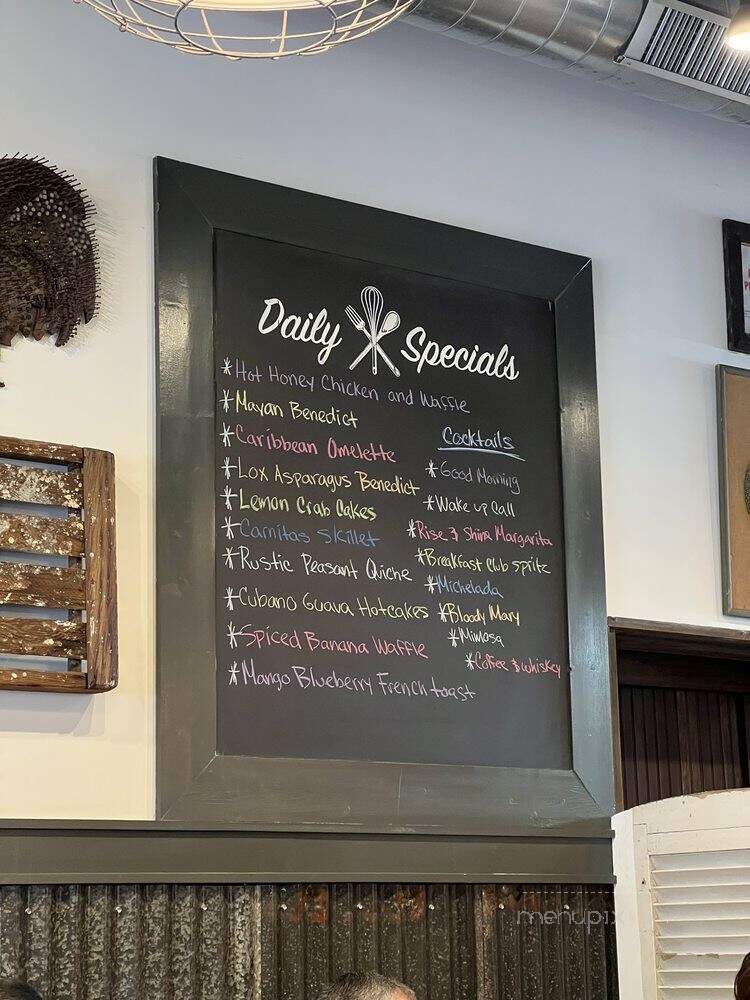 Daily Specials
*Hot Honey Chicken and Waffle
*Mayan Benedict
*Caribbean Omelette
*Lox Asparagus Benedict
*Lemon Crab Cakes
*Carnitas Skillet
*Rustic Peasant Quiche
*Cubano Guava Hotcakes
*Spiced Banana Waffle
*Mango Blueberry French toast
Cocktails
*Good Morning
*Wake up Call
*Rise & Shine Margarita
*Breakfast Club Spritz
*Michelada
*Bloody Mary
*Mimosa
*Coffee & whiskey
menupix